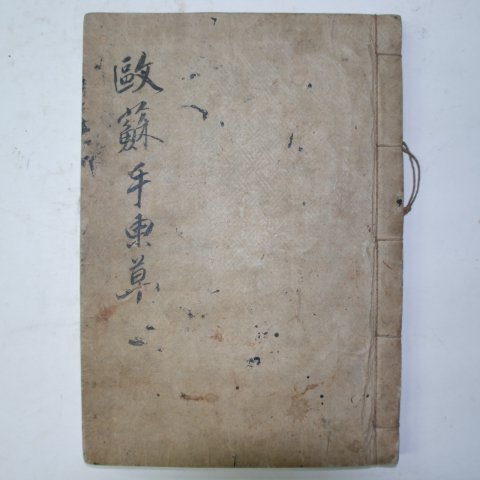 歐蘇手柬草